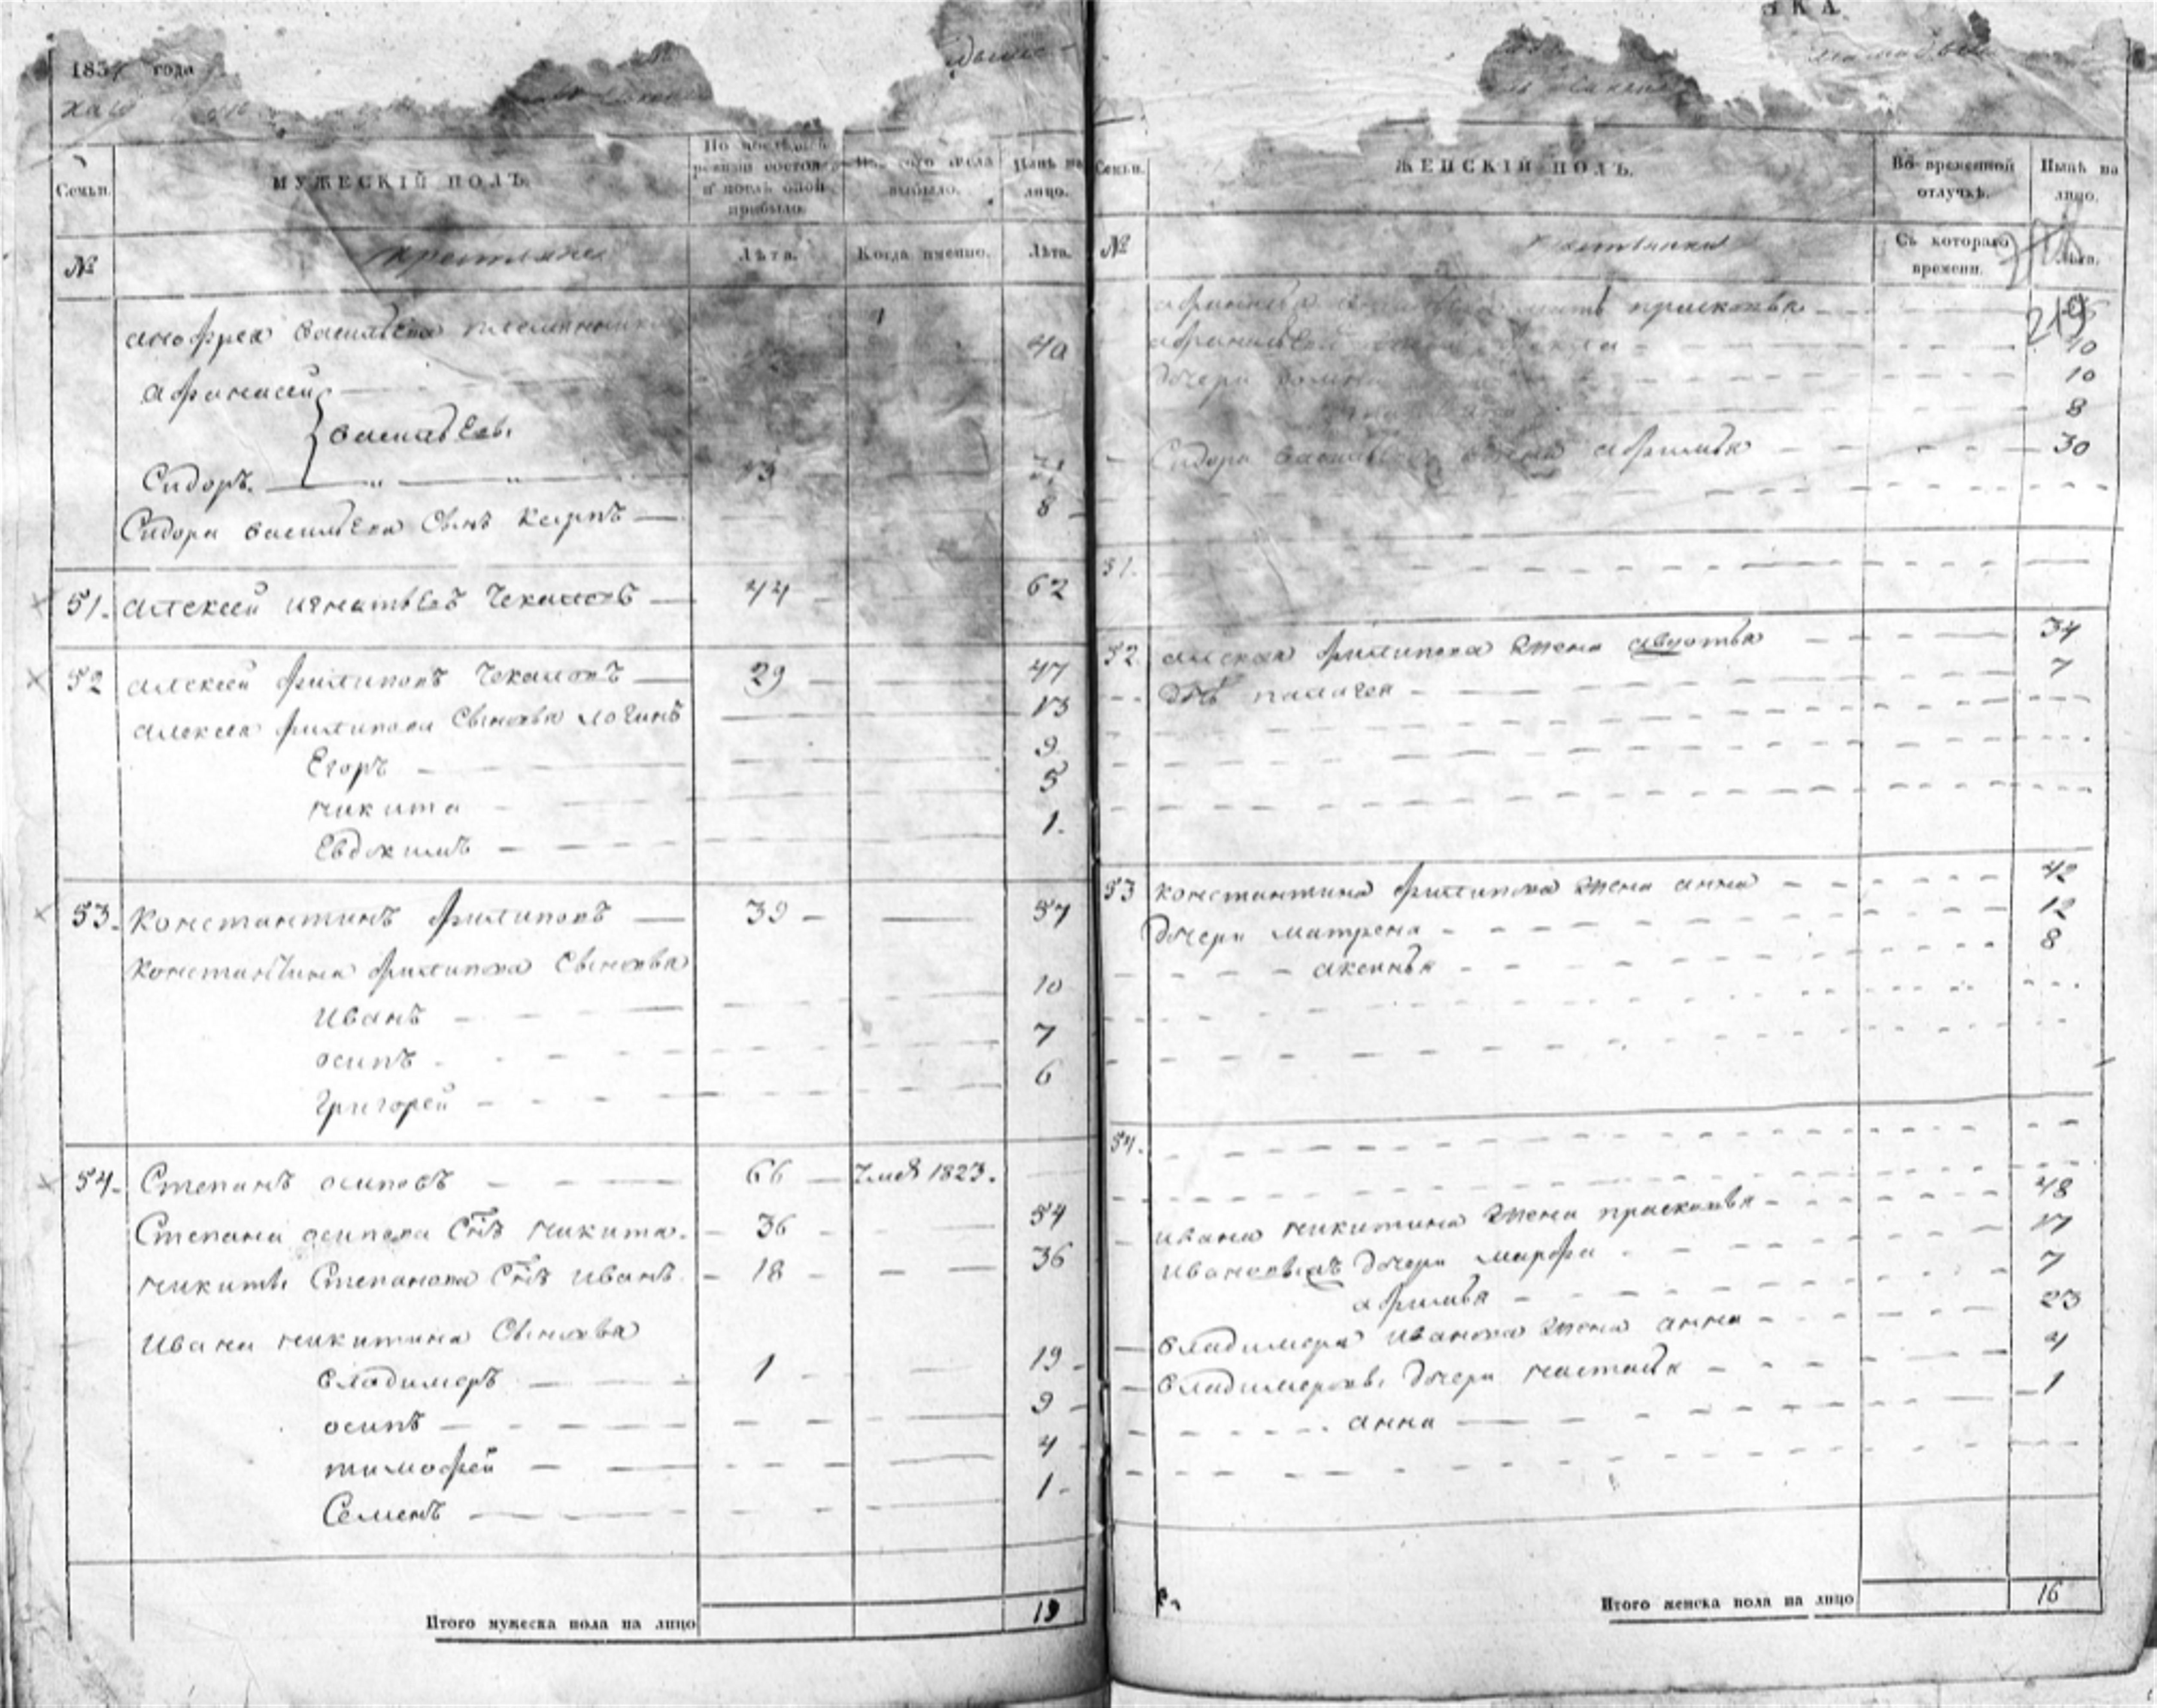 1834 года
Семьи.
МУЖЕСКІЙ ПОЛЪ.
По послѣдней ревизіи состояло и послѣ оной прибыло.
Изъ того числа выбыло.
Нынѣ на лицо.
№
крестьяне
Лѣта.
Когда именно.
Лѣта.
анофрея васильева племянники
40
афанасей
васильевы
Сидоръ. 13
Сидора васильева Сынъ карпъ 8
51. алексей игнатьевъ Чекаловъ 44 62
52 алексей филиповъ Чекаловъ 29 47
алексея филипова Сыновья логинъ 13
Егоръ 9
никита 5
Евдокимъ 1.
53. Константинъ филиповъ 39 57
Константина филипова Сыновья
иванъ 10
осипъ 7
григорей 6
54. Степанъ осиповъ 66 Умеръ 1823.
Степана осипова Снъ никита. 36 54
никиты Степанова Снъ иванъ 18 36
ивана никитина Сыновья
владимеръ 1 19
осипъ 9
тимофей 4
Семенъ 1
Итого мужеска пола на лицо 19
Семьи.
ЖЕНСКІЙ ПОЛЪ.
Во временной отлучкѣ.
Нынѣ на лицо.
№
Съ котораго времени.
Лѣта.
219
мать прасковья
10
дочери 10
8
Сидора васильева жена афимья 30
51.
52. алексея филипова жена авдотья 34
дочь палагея 7
53 константина филипова жена анна 42
дочери матрена 12
аксинья 8
54.
ивана никитина жена прасковья 48
ивановы дочери марфа 17
афимья 7
владимера иванова жена анна 23
владимеровы дочери настасья 4
анна 1
Итого женска пола на лицо 16